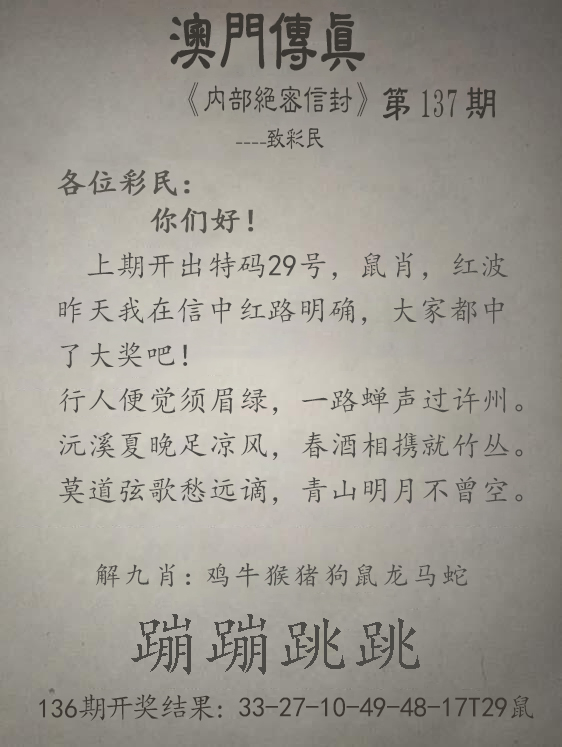 澳門傳真
《内部絕密信封》第137期
----致彩民
各位彩民：
你们好！
上期开出特码29号，鼠肖，红波
昨天我在信中红路明确，大家都中
了大奖吧！
行人便觉须眉绿，一路蝉声过许州。
沅溪夏晚足凉风，春酒相携就竹丛。
莫道弦歌愁远谪，青山明月不曾空。
解九肖：鸡牛猴猪狗鼠龙马蛇
蹦蹦跳跳
136期开奖结果：33-27-10-49-48-17T29鼠